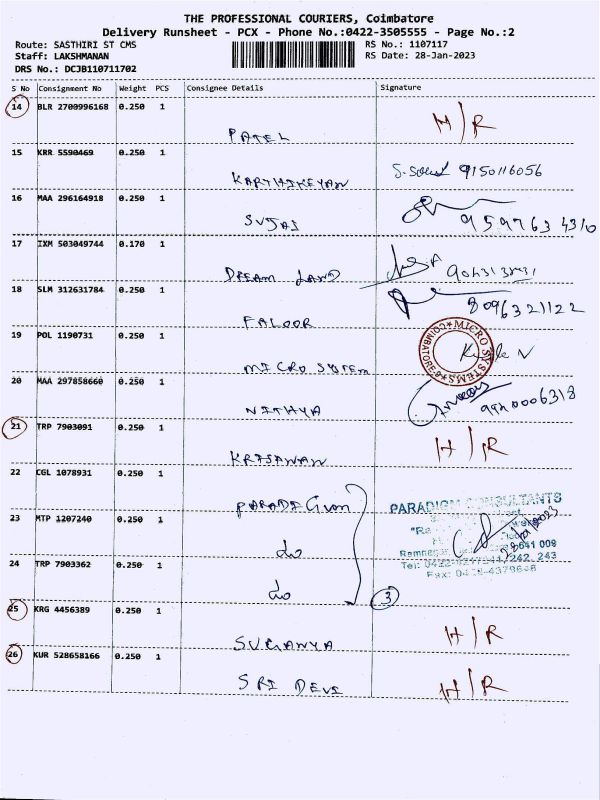 THE PROFESSIONAL COURIERS, Coimbatore
Delivery Runsheet - PCX - Phone No.:0422-3505555 - Page No.:2
Route: SASTHIRI ST CMS RS No.: 1107117
Staff: LAKSHMANAN RS Date: 28-Jan-2023
DRS No.: DCJB110711702
S No Consignment No Weight PCS Consignee Details Signature
14 BLR 2700996168 0.250 1 PATEL H/R
15 KRR 5590469 0.250 1 KARTHIKEYAN 9150116056
16 MAA 296164918 0.250 1 SUJAI 9597634310
17 IXM 503049744 0.170 1 DREAM LAND
18 SLM 312631784 0.250 1 FALOOR 8096321122
19 POL 1190731 0.250 1 MICRO SYSTEM MICRO SYSTEMS COIMBATORE
20 MAA 297858660 0.250 1 NITHYA
21 TRP 7903091 0.250 1 H/R
22 CGL 1078931 0.250 1 PARADIGM PARADIGM CONSULTANTS
23 MTP 1207240 0.250 1 do
24 TRP 7903362 0.250 1 do 3
25 KRG 4456389 0.250 1 SUGANYA H/R
26 KUR 528658166 0.250 1 SRI DEVI H/R